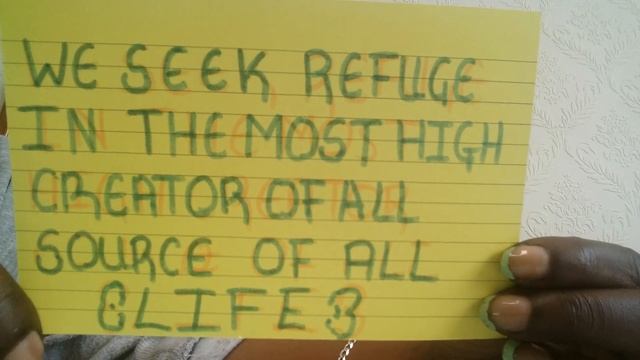 WE SEEK REFUGE
IN THE MOST HIGH
CREATOR OF ALL
SOURCE OF ALL
LIFE